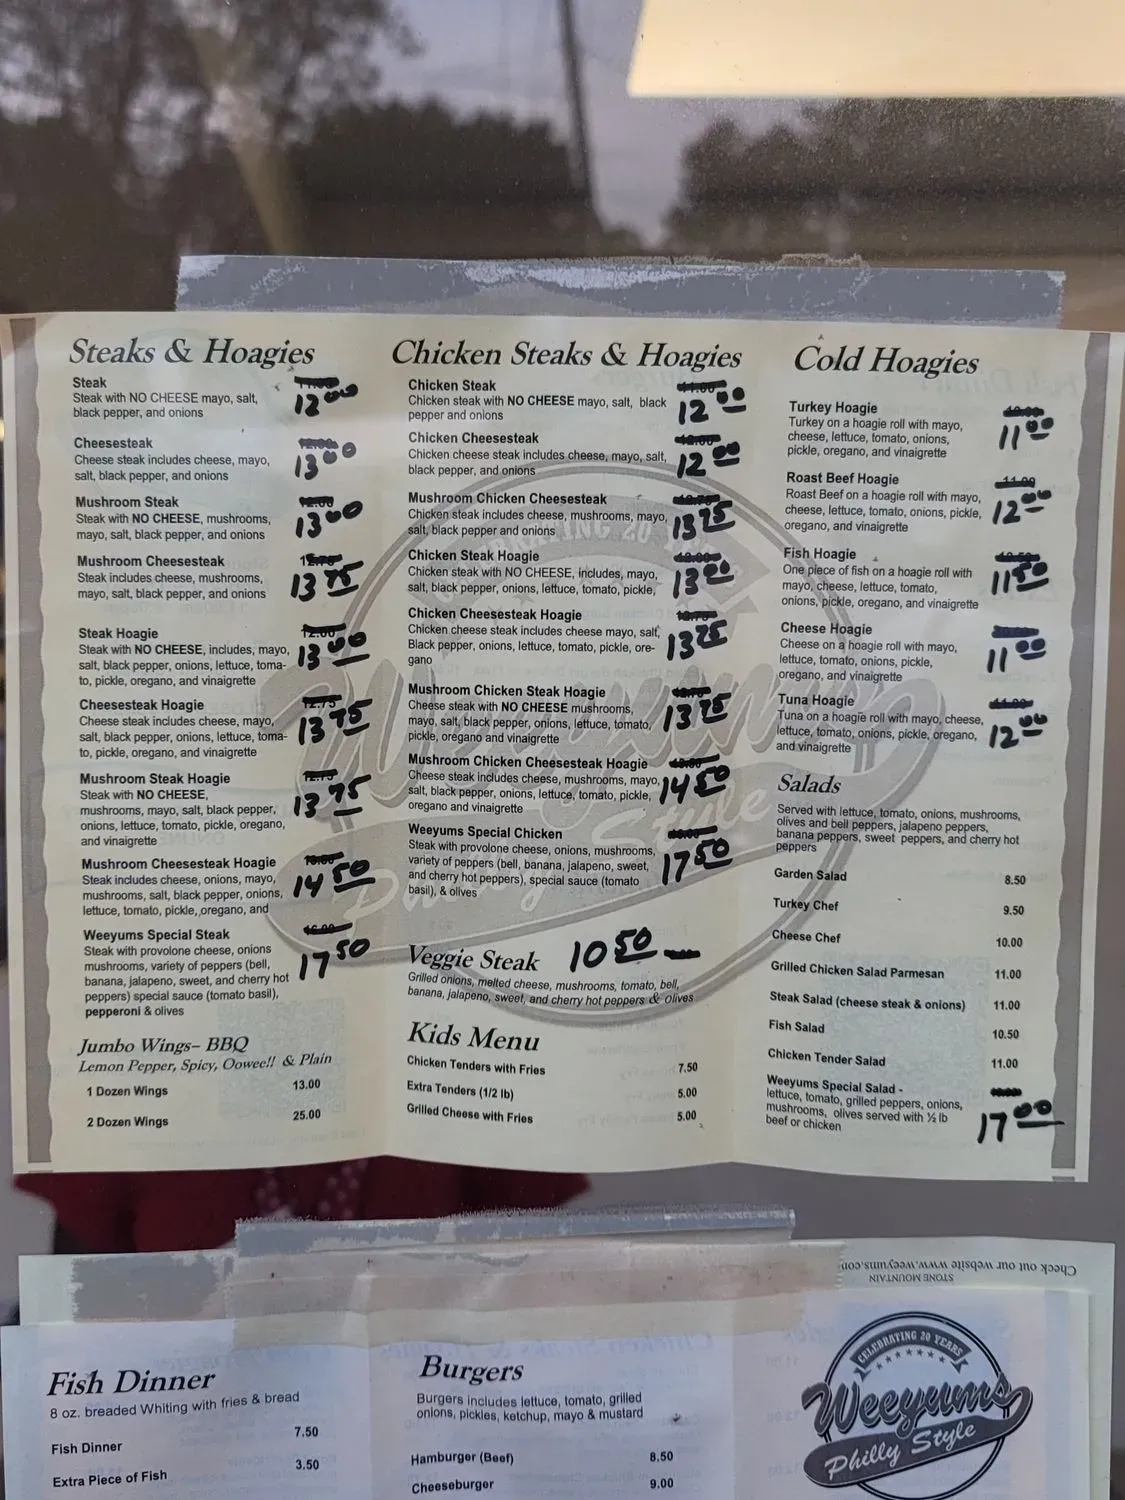 Steaks & Hoagies
Steak 12.00
Steak with NO CHEESE mayo, salt,
black pepper, and onions
Cheesesteak 12.00 13.00
Cheese steak includes cheese, mayo,
salt, black pepper, and onions
Mushroom Steak 12.00 13.00
Steak with NO CHEESE, mushrooms,
mayo, salt, black pepper, and onions
Mushroom Cheesesteak 12.75 13.75
Steak includes cheese, mushrooms,
mayo, salt, black pepper, and onions
Steak Hoagie 12.00 13.00
Steak with NO CHEESE, includes, mayo,
salt, black pepper, onions, lettuce, toma-
to, pickle, oregano, and vinaigrette
Cheesesteak Hoagie 12.75 13.75
Cheese steak includes cheese, mayo,
salt, black pepper, onions, lettuce, toma-
to, pickle, oregano, and vinaigrette
Mushroom Steak Hoagie 12.75 13.75
Steak with NO CHEESE,
mushrooms, mayo, salt, black pepper,
onions, lettuce, tomato, pickle, oregano,
and vinaigrette
Mushroom Cheesesteak Hoagie 14.50
Steak includes cheese, onions, mayo,
mushrooms, salt, black pepper, onions,
lettuce, tomato, pickle, oregano, and
Weeyums Special Steak 16.00 17.50
Steak with provolone cheese, onions
mushrooms, variety of peppers (bell,
banana, jalapeno, sweet, and cherry hot
peppers) special sauce (tomato basil),
pepperoni & olives
Jumbo Wings– BBQ
Lemon Pepper, Spicy, Oowee!! & Plain
1 Dozen Wings 13.00
2 Dozen Wings 25.00
Chicken Steaks & Hoagies
Chicken Steak 11.00 12.00
Chicken steak with NO CHEESE mayo, salt, black
pepper and onions
Chicken Cheesesteak 12.00
Chicken cheese steak includes cheese, mayo, salt,
black pepper, and onions
Mushroom Chicken Cheesesteak 13.75
Chicken steak includes cheese, mushrooms, mayo,
salt, black pepper and onions
Chicken Steak Hoagie 13.00
Chicken steak with NO CHEESE, includes, mayo,
salt, black pepper, onions, lettuce, tomato, pickle,
Chicken Cheesesteak Hoagie 13.75
Chicken cheese steak includes cheese mayo, salt,
Black pepper, onions, lettuce, tomato, pickle, ore-
gano
Mushroom Chicken Steak Hoagie 13.75
Cheese steak with NO CHEESE mushrooms,
mayo, salt, black pepper, onions, lettuce, tomato,
pickle, oregano and vinaigrette
Mushroom Chicken Cheesesteak Hoagie 14.50
Cheese steak includes cheese, mushrooms, mayo,
salt, black pepper, onions, lettuce, tomato, pickle,
oregano and vinaigrette
Weeyums Special Chicken 17.50
Steak with provolone cheese, onions, mushrooms,
variety of peppers (bell, banana, jalapeno, sweet,
and cherry hot peppers), special sauce (tomato
basil), & olives
Veggie Steak 10.50
Grilled onions, melted cheese, mushrooms, tomato, bell,
banana, jalapeno, sweet, and cherry hot peppers & olives
Kids Menu
Chicken Tenders with Fries 7.50
Extra Tenders (1/2 lb) 5.00
Grilled Cheese with Fries 5.00
Cold Hoagies
Turkey Hoagie 11.00
Turkey on a hoagie roll with mayo,
cheese, lettuce, tomato, onions,
pickle, oregano, and vinaigrette
Roast Beef Hoagie 11.00 12.00
Roast Beef on a hoagie roll with mayo,
cheese, lettuce, tomato, onions, pickle,
oregano, and vinaigrette
Fish Hoagie 11.50
One piece of fish on a hoagie roll with
mayo, cheese, lettuce, tomato,
onions, pickle, oregano, and vinaigrette
Cheese Hoagie 11.00
Cheese on a hoagie roll with mayo,
lettuce, tomato, onions, pickle,
oregano, and vinaigrette
Tuna Hoagie 12.00
Tuna on a hoagie roll with mayo, cheese,
lettuce, tomato, onions, pickle, oregano,
and vinaigrette
Salads
Served with lettuce, tomato, onions, mushrooms,
olives and bell peppers, jalapeno peppers,
banana peppers, sweet peppers, and cherry hot
peppers
Garden Salad 8.50
Turkey Chef 9.50
Cheese Chef 10.00
Grilled Chicken Salad Parmesan 11.00
Steak Salad (cheese steak & onions) 11.00
Fish Salad 10.50
Chicken Tender Salad 11.00
Weeyums Special Salad - 17.00
lettuce, tomato, grilled peppers, onions,
mushrooms, olives served with ½ lb
beef or chicken
CELEBRATING 20 YEARS
Weeyums
Philly Style
Check out our website www.weeyums.com
STONE MOUNTAIN
Fish Dinner
8 oz. breaded Whiting with fries & bread
Fish Dinner 7.50
Extra Piece of Fish 3.50
Burgers
Burgers includes lettuce, tomato, grilled
onions, pickles, ketchup, mayo & mustard
Hamburger (Beef) 8.50
Cheeseburger 9.00
CELEBRATING 20 YEARS
Weeyums
Philly Style